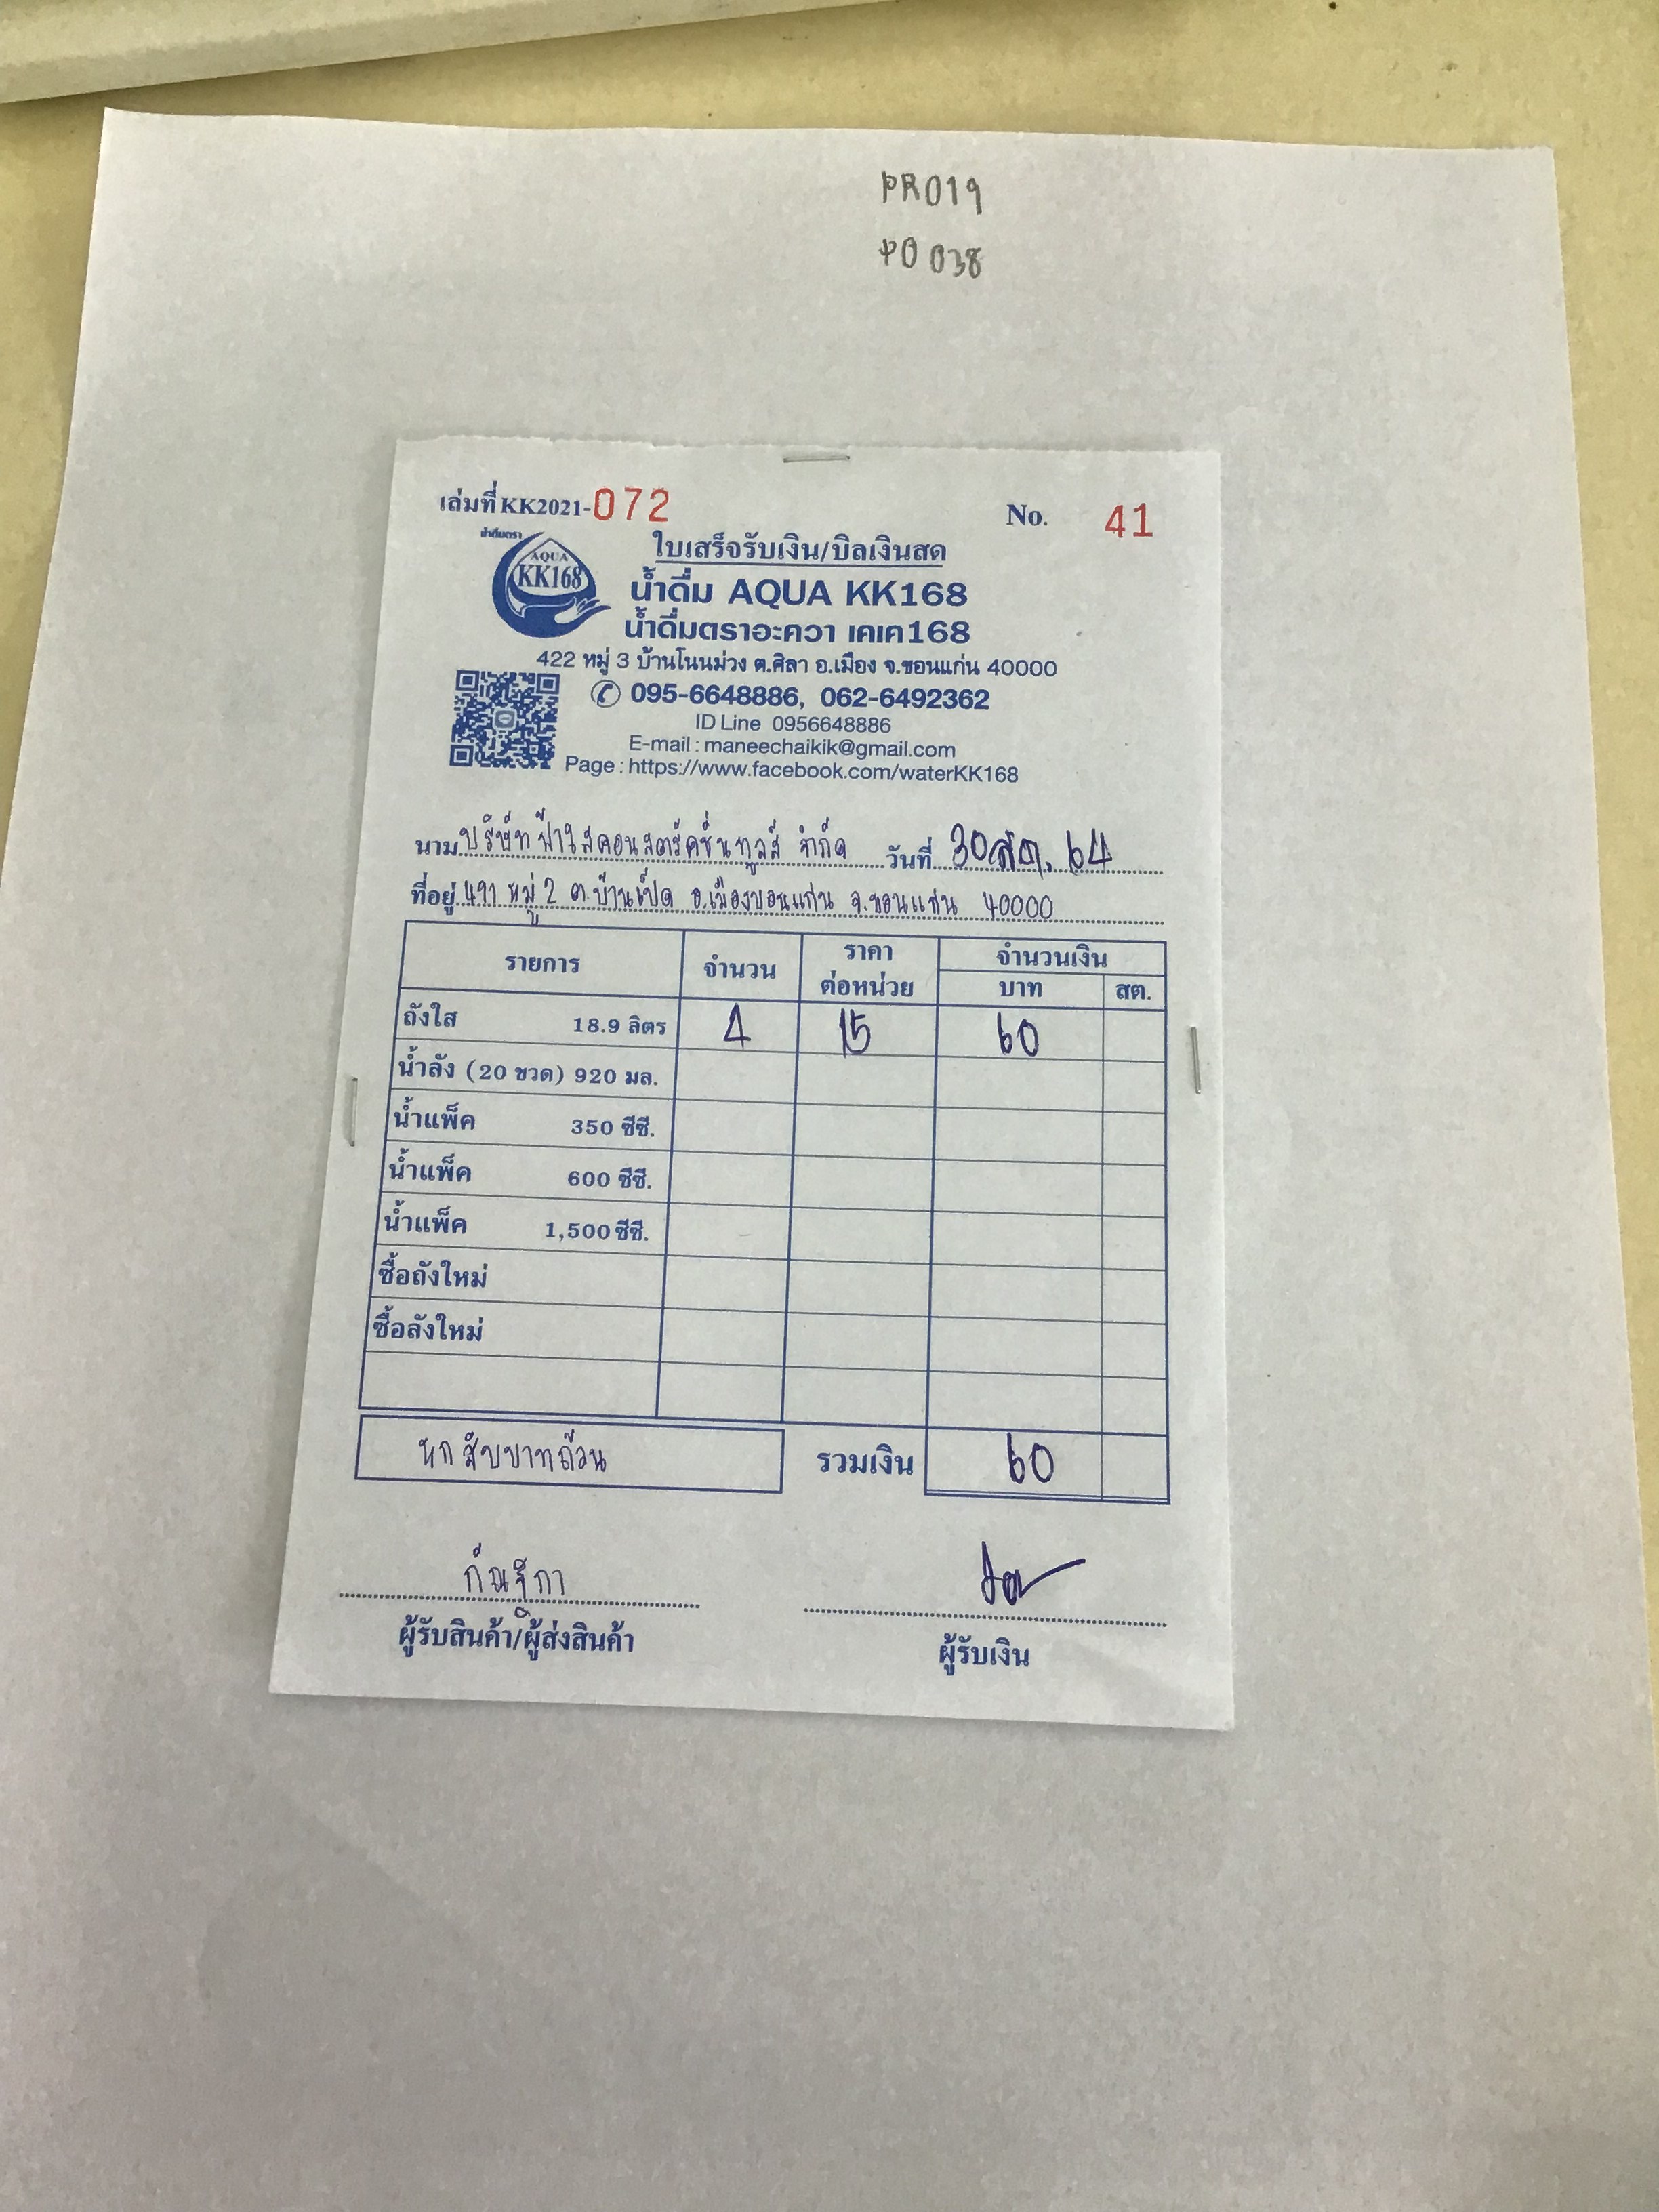 PR019
PO 038
เล่มที่ KK2021-072
No. 41
ใบเสร็จรับเงิน/บิลเงินสด
AQUA
KK168
น้ำดื่ม AQUA KK168
น้ำดื่มตราอะควา เคเค168
422 หมู่ 3 บ้านโนนม่วง ต.ศิลา อ.เมือง จ.ขอนแก่น 40000
095-6648886, 062-6492362
ID Line 0956648886
E-mail : maneechaikik@gmail.com
Page : https://www.facebook.com/waterKK168
นาม บริษัท ฟาวิสคอนสตรัคชั่น ทูลส์ จำกัด วันที่ 30 สค. 64
ที่อยู่ 499 หมู่ 2 ต.บ้านเป็ด อ.เมืองขอนแก่น จ.ขอนแก่น 40000
รายการ จำนวน ราคาต่อหน่วย จำนวนเงิน
บาท สต.
ถังใส 18.9 ลิตร 4 15 60
น้ำลัง (20 ขวด) 920 มล.
น้ำแพ็ค 350 ซีซี.
น้ำแพ็ค 600 ซีซี.
น้ำแพ็ค 1,500 ซีซี.
ซื้อถังใหม่
ซื้อลังใหม่
หกสิบบาทถ้วน รวมเงิน 60
ผู้รับสินค้า/ผู้ส่งสินค้า ผู้รับเงิน